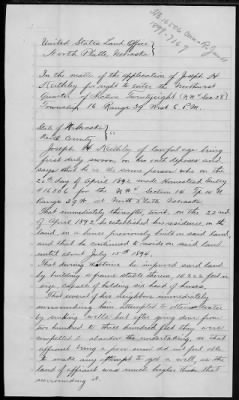 United States Land Office
North Platte Nebraska
In the matter of the application of Joseph H.
Keithley for right to enter the Northwest
Quarter of Section Twentyeight (N.W¼ Sec. 28)
Township 16 Range 39 West 6 P.M.
State of Nebraska
Keith County
Joseph H. Keithley of lawful age being
first duly sworn, on his oath deposes and
says that he is the same person who on the
day of April 1892 made Homestead Entry
for the N.W¼ Section Tp. 16 N.
Range 39 W. at North Platte Nebraska
That immediately thereafter, to wit, on the 22nd
of April 1892 he established his residence on the
land, in a house previously built on said land,
and that he continued to reside on said land
until about July 15th 1894.
That during residence he improved said land
by building a frame stable thereon, 16 x 22 feet in
size capable of holding six head of horses.
That several of his neighbors immediately
surrounding him attempted to obtain water
by sinking wells but after going down from
two hundred to three hundred feet they were
compelled to abandon the undertaking, so that
affiant being a poor man did not feel able
to make any attempt to get a well, as the
land of affiant was much higher than that
surrounding it.